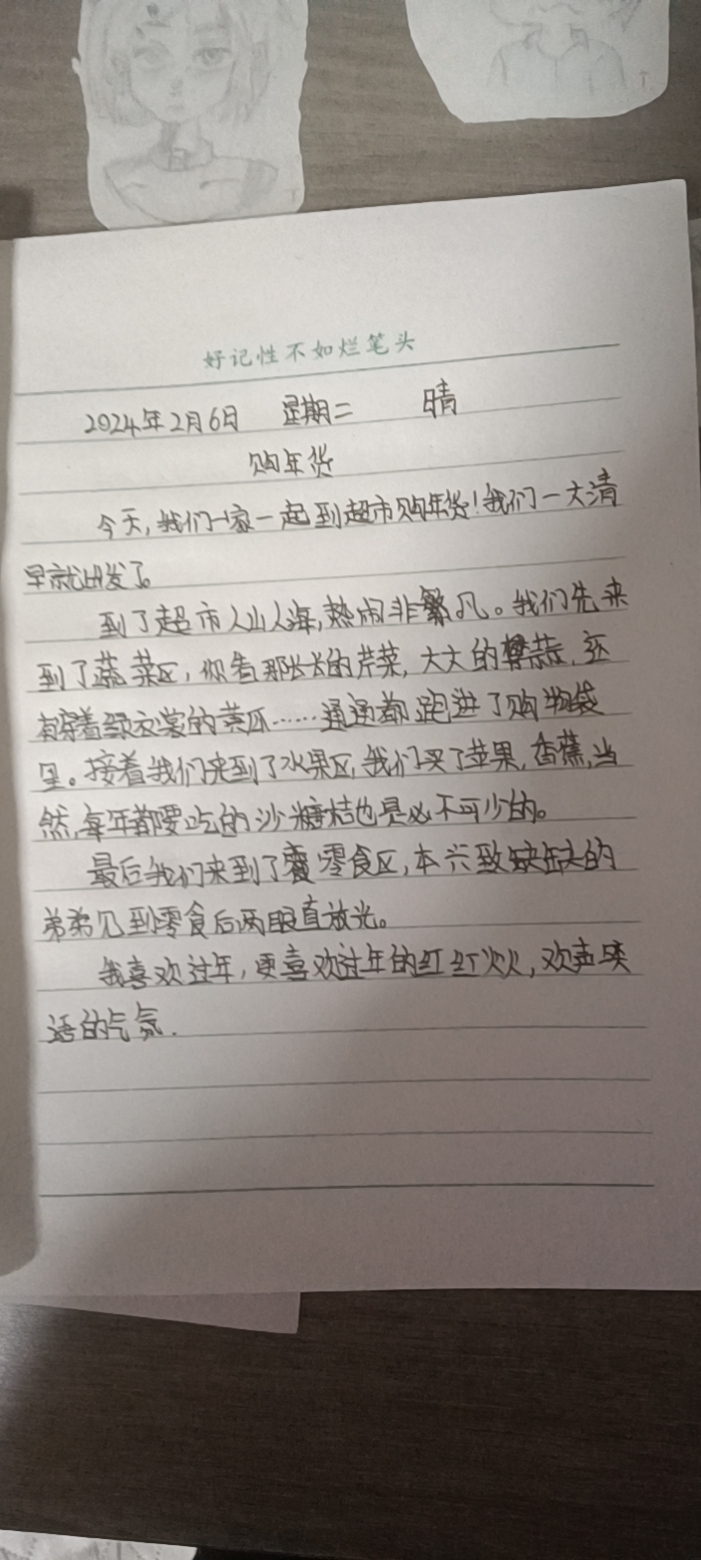 好记性不如烂笔头
2024年2月6日 星期二 晴
购年货
今天,我们一家一起到超市购年货!我们一大清
早就出发了。
到了超市人山人海,热闹非繁凡。我们先来
到了蔬菜区,你看那长长的芹菜,大大的蒜,还
有穿着绿衣裳的黄瓜……通通都跑进了购物袋
里。接着我们来到了水果区,我们买了苹果,香蕉,当
然,每年都要吃的沙糖桔也是必不可少的。
最后我们来到了零食区,本兴致缺缺的
弟弟见到零食后两眼直放光。
我喜欢过年,更喜欢过年的红红火火,欢声笑
语的气氛.